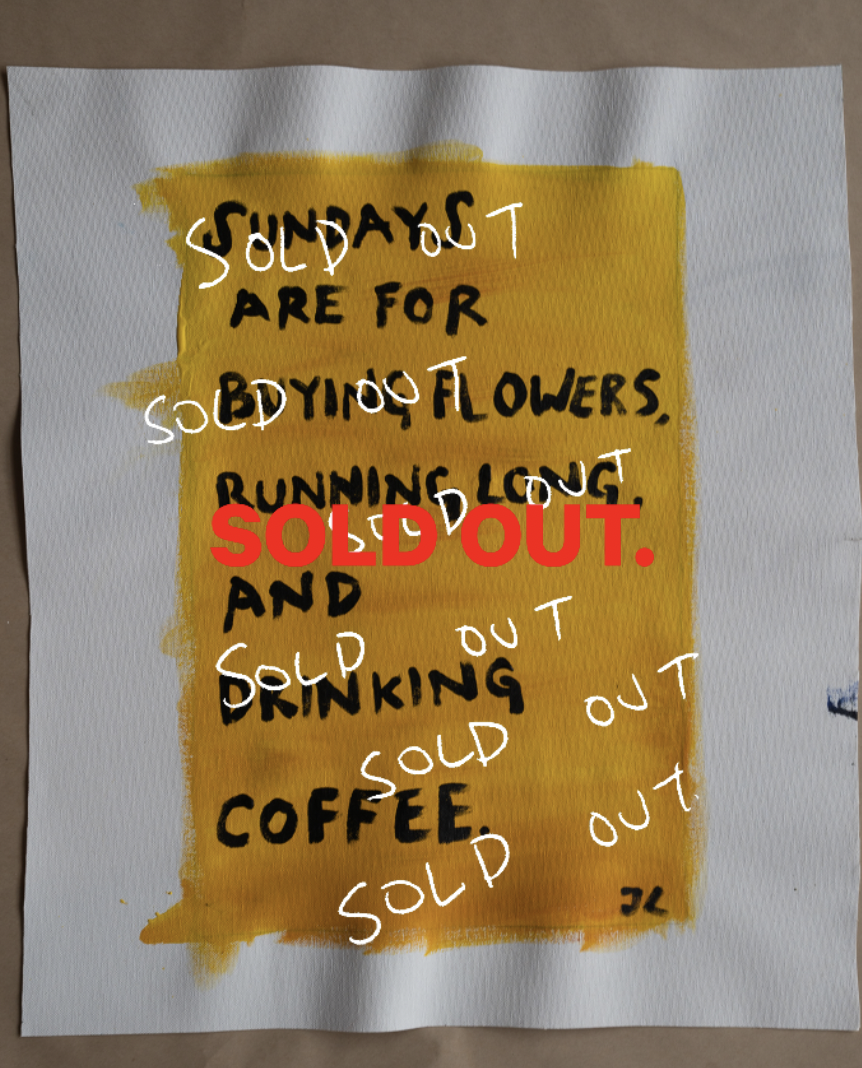 SUNDAYS
SOLD OUT
ARE FOR
BUYING FLOWERS,
SOLD OUT
RUNNING LONG,
SOLD OUT
SOLD OUT.
AND
SOLD OUT
DRINKING
SOLD OUT
COFFEE.
SOLD OUT
JL